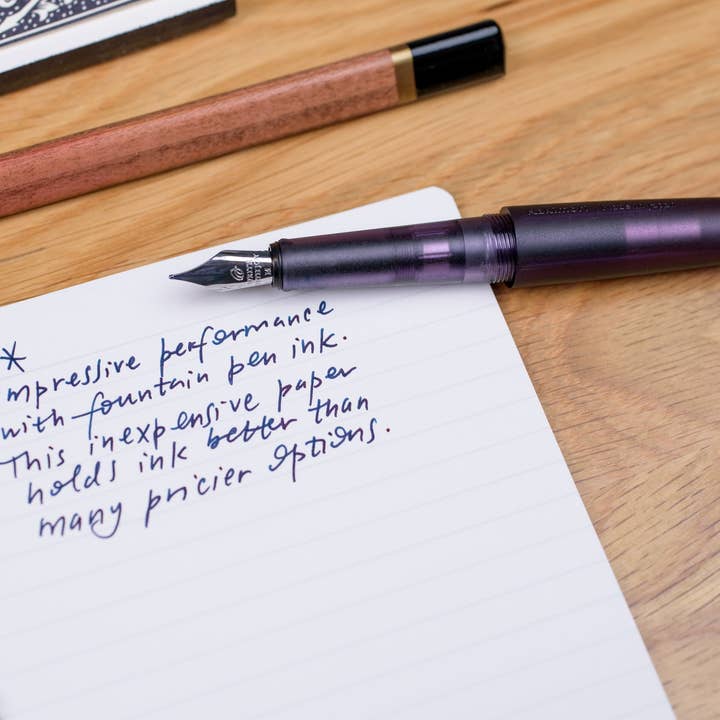 *
mpressive performance
with fountain pen ink.
This inexpensive paper
holds ink better than
many pricier options.